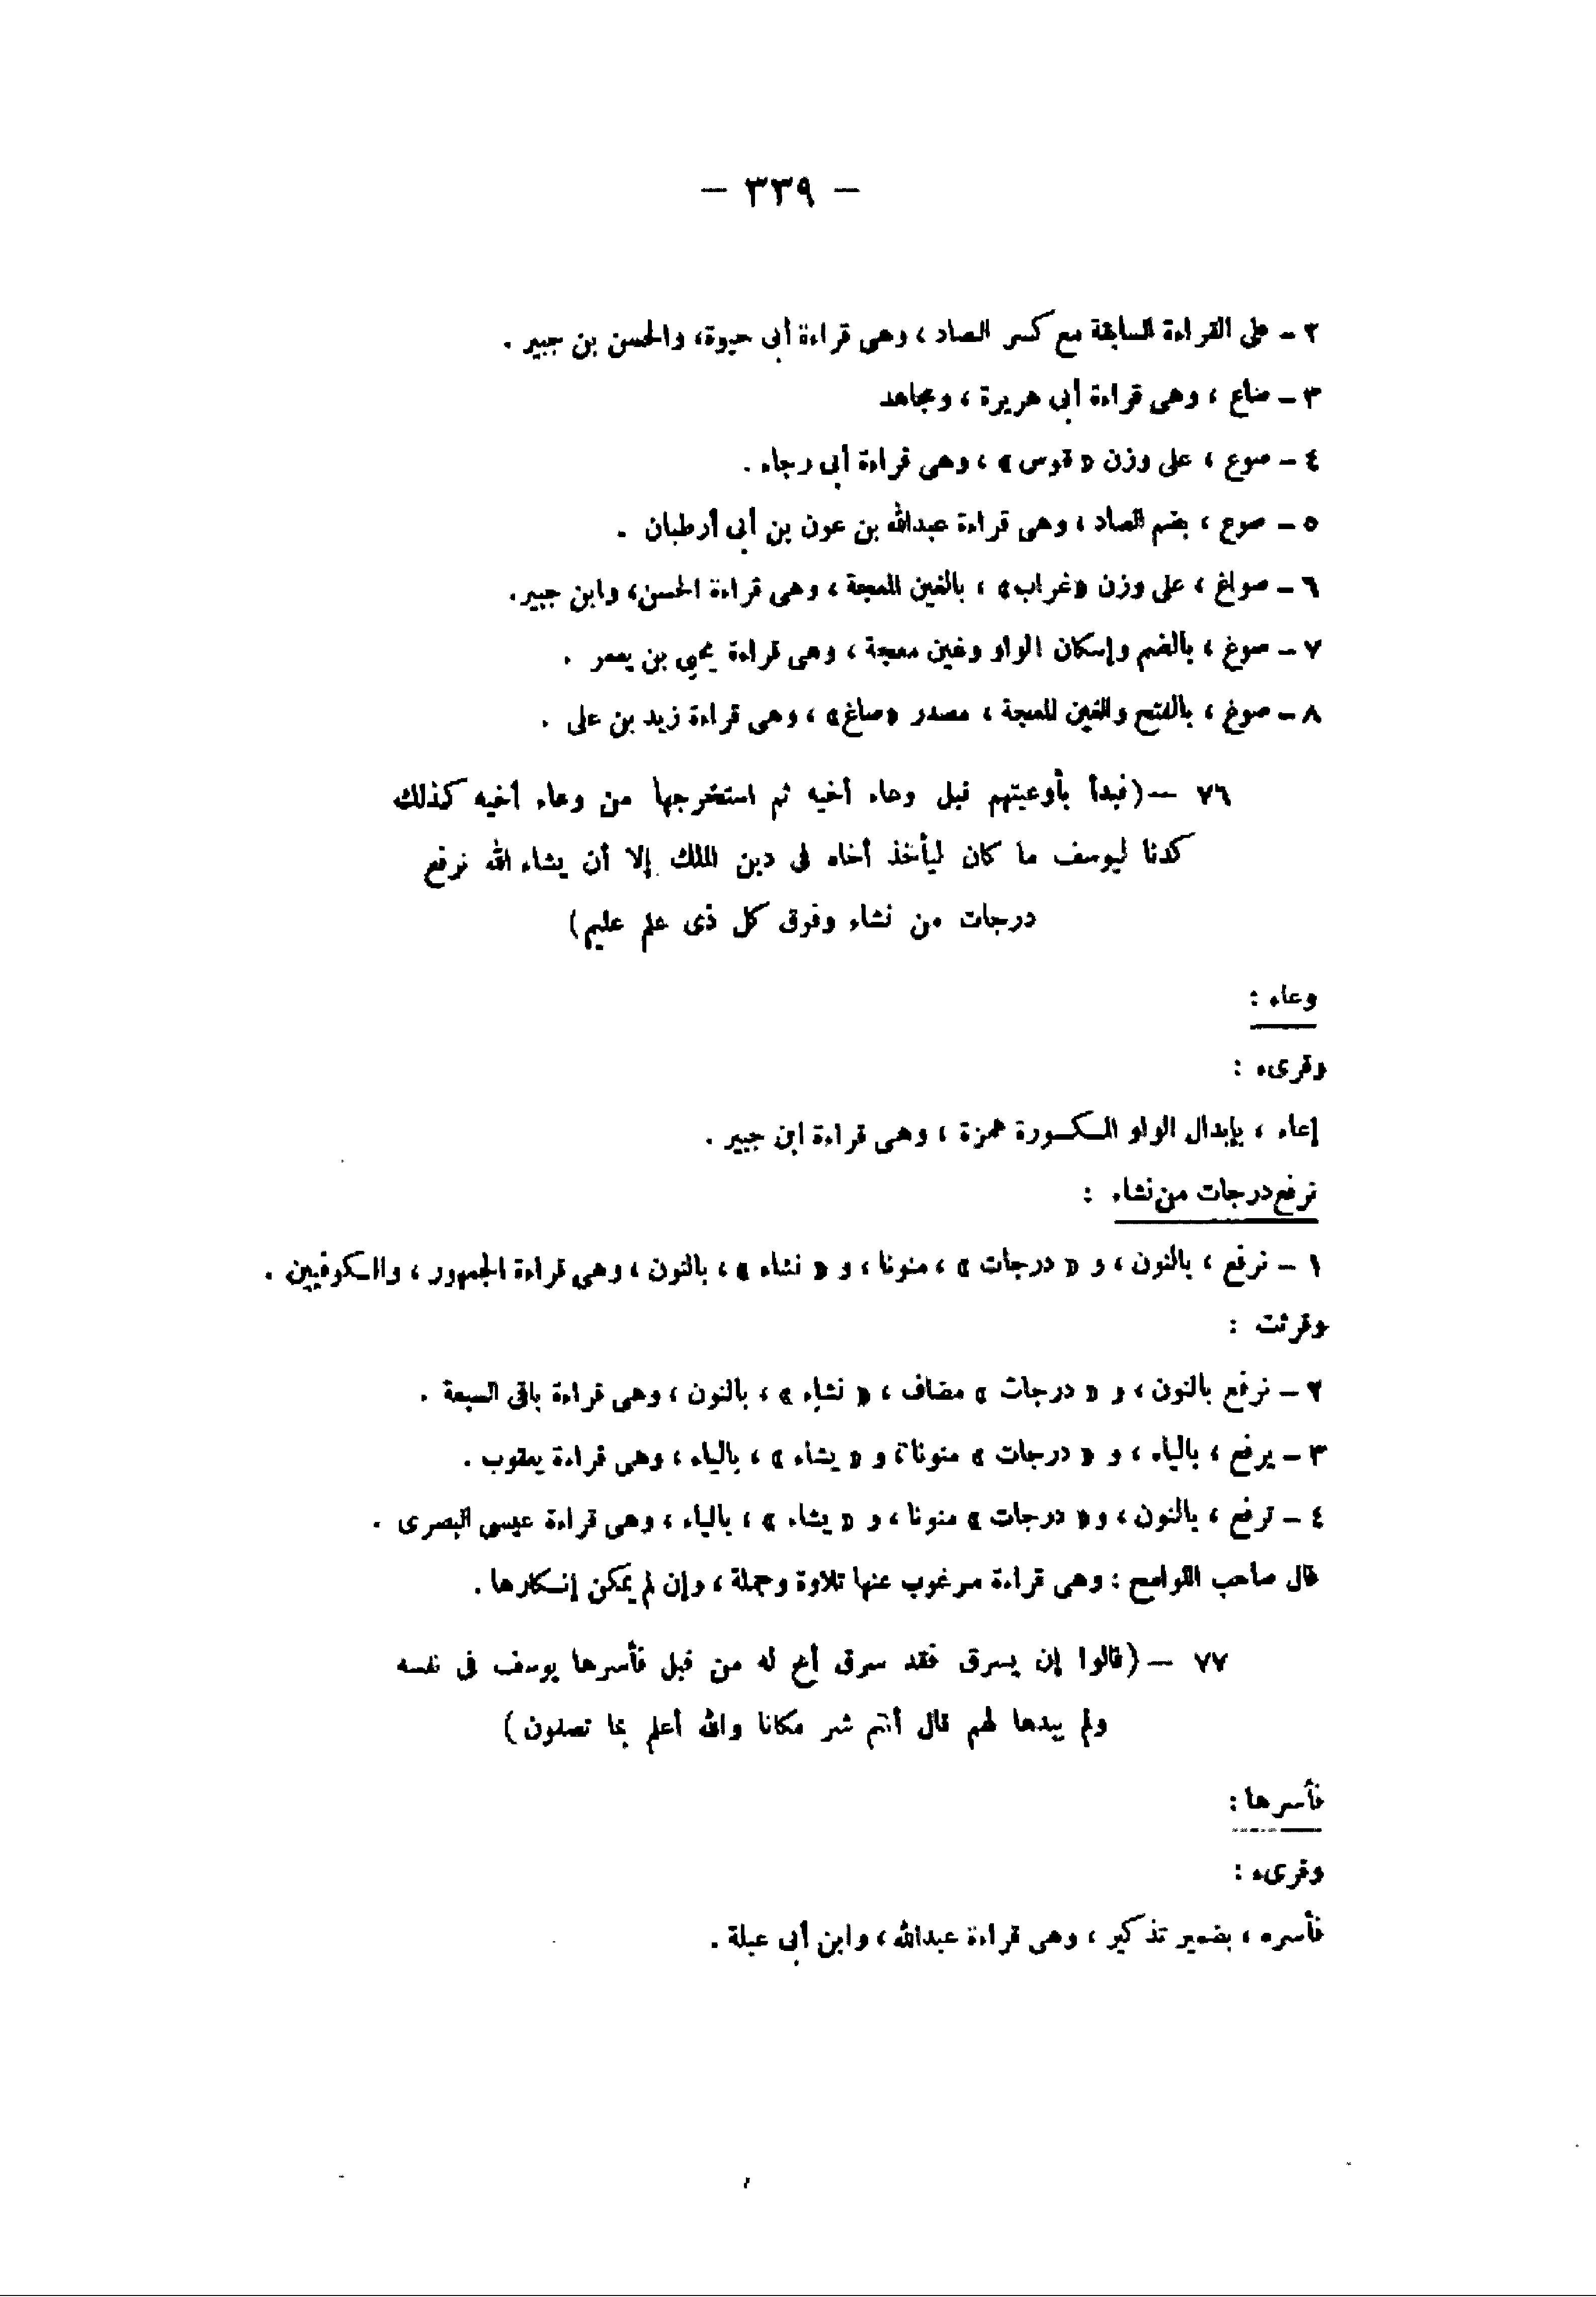 — ٣٣٩ —
٢ - على القراءة السابقة مع كسر الصاد ، وهى قراءة أبى حيوة، والحسن بن جبير .
٣ - صاع ، وهى قراءة أبى هريرة ، ومجاهد
٤ - صوع ، على وزن « قوس » ، وهى قراءة أبى رجاء .
٥ - صوع ، بضم الصاد ، وهى قراءة عبدالله بن عون بن أبى أرطبان .
٦ - صواغ ، على وزن «غراب» ، بالغين المعجمة ، وهى قراءة الحسن، وابن جبير.
٧ - صوغ ، بالضم وإسكان الواو وغين معجمة ، وهى قراءة يحيى بن يعمر .
٨ - صوغ ، بالفتح والغين المعجمة ، مصدر «صاغ» ، وهى قراءة زيد بن على .
٧٦ — (فبدأ بأوعيتهم قبل وعاء أخيه ثم استخرجها من وعاء أخيه كذلك
كدنا ليوسف ما كان ليأخذ أخاه فى دين الملك إلا أن يشاء الله نرفع
درجات من نشاء وفوق كل ذى علم عليم)
وعاء :
وقرىء :
إعاء ، بإبدال الواو المكسورة همزة ، وهى قراءة ابن جبير .
نرفع درجات من نشاء :
١ - نرفع ، بالنون ، و « درجات » ، منونا ، و « نشاء » ، بالنون ، وهى قراءة الجمهور ، والكوفيين .
وقرئت :
٢ - نرفع بالنون ، و « درجات » مضاف ، « نشاء » ، بالنون ، وهى قراءة باقى السبعة .
٣ - يرفع ، بالياء ، و « درجات » منونا، و « يشاء » ، بالياء ، وهى قراءة يعقوب .
٤ - ترفع ، بالنون ، و« درجات » منونا ، و « يشاء » ، بالياء ، وهى قراءة عيسى البصرى .
قال صاحب اللوامح : وهى قراءة مرغوب عنها تلاوة وجملة ، وإن لم يمكن إنكارها .
٧٧ — (قالوا إن يسرق فقد سرق أخ له من قبل فأسرها يوسف فى نفسه
ولم يبدها لهم قال أنتم شر مكانا والله أعلم بما تصفون)
فأسرها :
وقرىء :
فأسره ، بضمير تذكير ، وهى قراءة عبدالله ، وابن أبى عبلة .